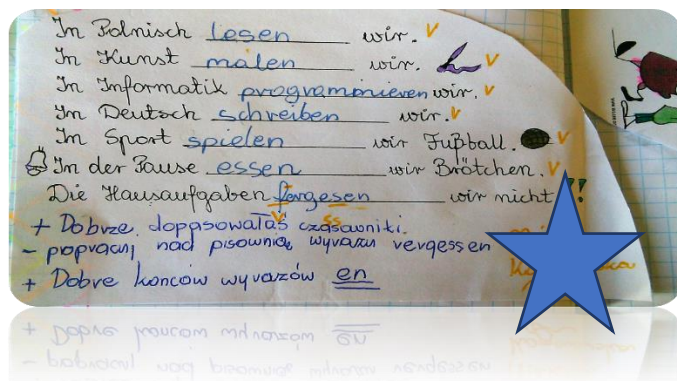 In Polnisch lesen wir.
In Kunst malen wir.
In Informatik programmieren wir.
In Deutsch schreiben wir.
In Sport spielen wir Fußball.
In der Pause essen wir Brötchen.
Die Hausaufgaben fergesen wir nicht!
v ss
+ Dobrze dopasowałaś czasowniki.
- popracuj nad pisownią wyrazu vergessen
+ Dobre końców wyrazów en